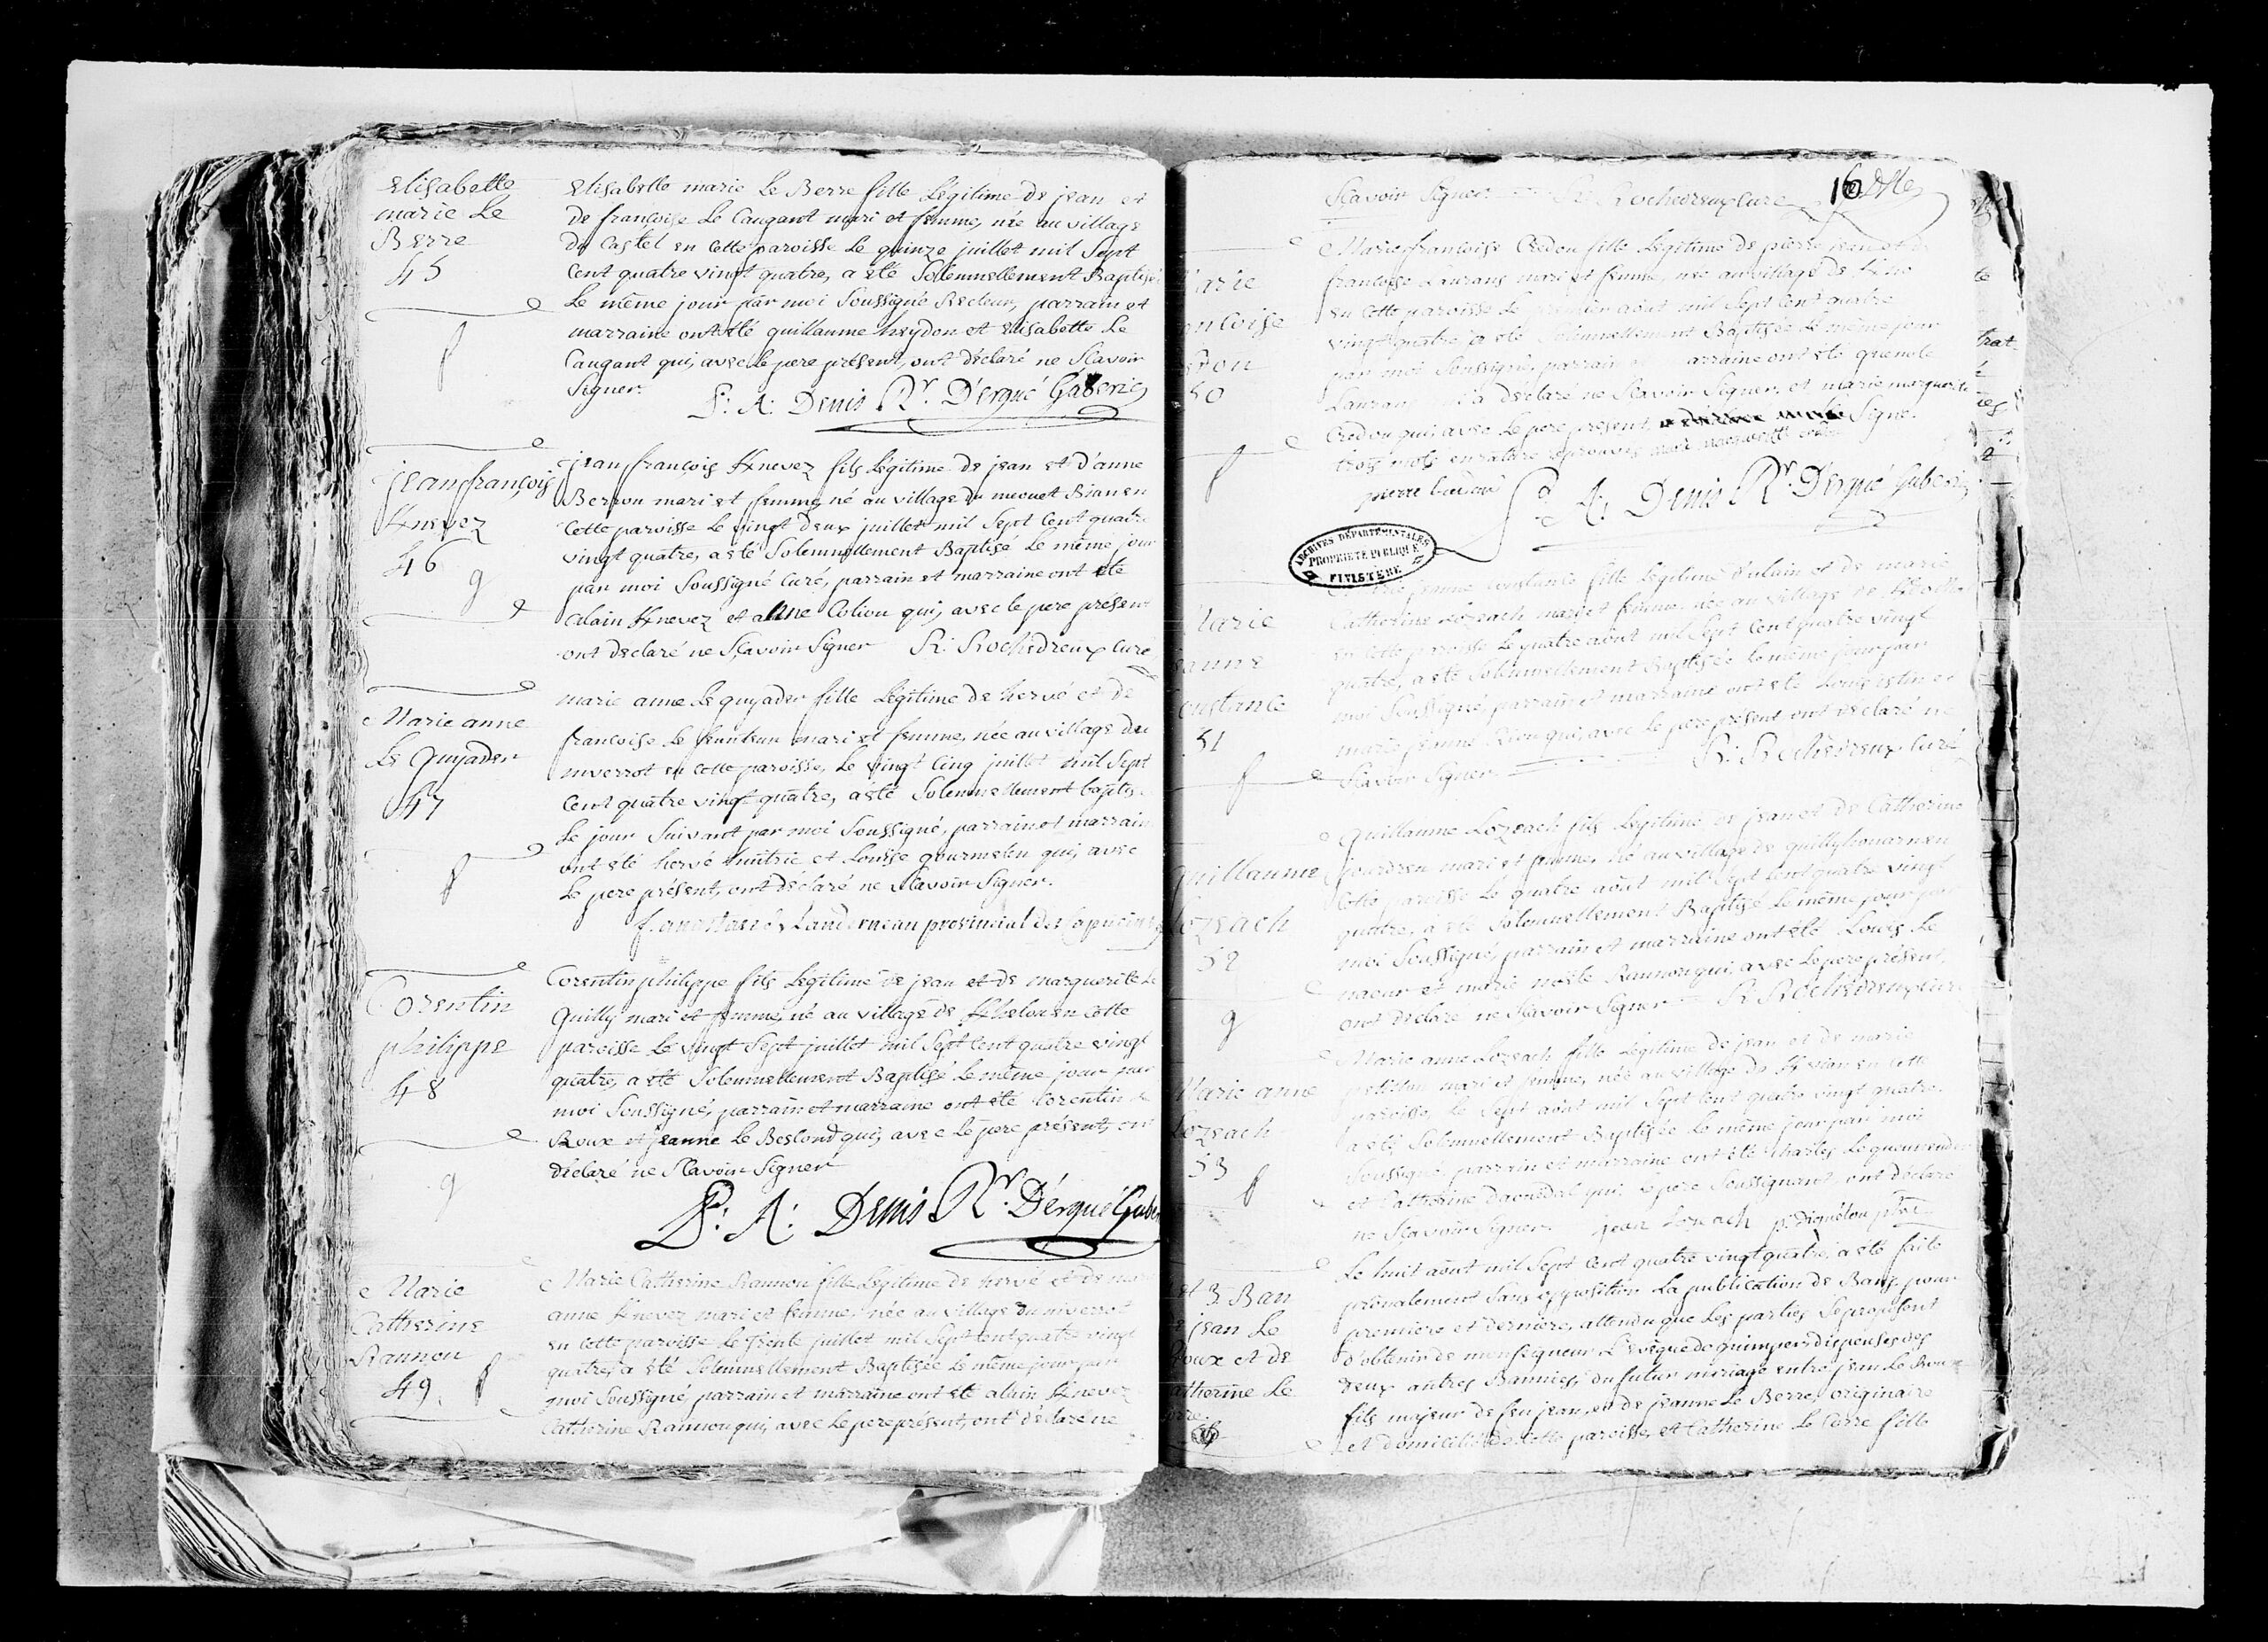 Elisabette
marie Le
Berre
45
f
Elisabette marie Le Berre fille Légitime de jean et
de françoise Le Caugant mari et femme, née au village
du Castel en cette paroisse Le quinze juillet mil Sept
cent quatre vingt quatre, a été Solemnellement Baptisé
Le même jour par moi Soussigné Recteur, parrain et
marraine ont été guillaume heydon et Elisabette Le
Caugant qui, avec le pere présent, ont déclaré ne Sçavoir
Signer. P: A: Denis Rr. D'ergué Gaberic
jean françois
Knevez
46
g
jean françois Knevez fils Légitime de jean et d'anne
Berrou mari et femme, né au village du Bian en
cette paroisse Le vingt deux juillet mil Sept cent quatre
vingt quatre, a été Solemnellement Baptisé Le même jour
par moi Soussigné Curé, parrain et marraine ont été
alain Knevez et anne Coliou qui, avec le pere présent
ont declaré ne Sçavoir Signer R: Rochedreux Curé
Marie anne
Le Guyader
47
f
marie anne Le guyader fille Légitime de hervé et de
francoise Le feunteun mari et femme, née au village du
niverrot en cette paroisse, Le vingt Cinq juillet mil Sept
cent quatre vingt quatre, a été Solemnellement baptis
Le jour Suivant par moi Soussigné, parrain et marrain
ont été hervé huitric et Louise gourmelen qui, avec
Le pere présent, ont déclaré ne Sçavoir Signer.
f. anastase de Landerneau provincial des Capucins
Corentin
philippe
48
g
Corentin philippe fils Légitime de jean et de marguerite Le
Quilly mari et femme, né au village de en cette
paroisse Le vingt Sept juillet mil Sept cent quatre vingt
quatre, a été Solemnellement Baptisé Le même jour par
moi Soussigné, parrain et marraine ont été Corentin Le
Roux et jeanne Le Beslond qui, avec Le pere présent, ont
déclaré ne Sçavoir Signer
P: A: Denis Rr. D'ergué Gaber
Marie
Catherine
Rannou
49. f
Marie Catherine Rannou fille Légitime de hervé et de ma
anne Knevez mari et femme, née au village du niverrot
en cette paroisse Le trente juillet mil Sept cent quatre vingt
quatre, a été Solemnellement Baptisée Le même jour par
moi Soussigné, parrain et marraine ont été alain Knevez
Catherine Rannou qui, avec Le pere présent, ont déclaré ne
Sçavoir Signer. Rochedreux Curé
16
Marie
ancoise
edou
50
f
Marie françoise Credou fille Légitime de pierre jean et de
françoise Laurans mari et femme, née au village de
en cette paroisse Le premier aout mil Sept cent quatre
vingt quatre, a été Solemnellement Baptisée Le même jour
par moi Soussigné, parrain arraine ont été guenolé
Lauran a déclaré ne Sçavoir Signer, et marie marguerite
Credou qui, avec Le pere présent, Signe.
trois mots en rature
pierre P: A: Denis Rr. D'ergué Gaberic
ARCHIVES DÉPARTEMENTALES
PROPRIÉTÉ PUBLIQUE
FINISTÈRE
Marie
eanne
onstance
51
f
jeanne Constance fille Légitime d'alain et de marie
Catherine Lozeach mari et femme, née au village de
en cette paroisse Le quatre aout mil Sept cent quatre vingt
quatre, a été Solemnellement Baptisée Le même jour par
moi Soussigné, parrain et marraine ont été Louis et
marie jeanne Riou qui, avec Le pere présent ont déclaré ne
Sçavoir Signer R: Rochedreux Curé
guillaume
Lozeach
52
g
guillaume Lozeach fils Légitime de jean et de Catherine
jourdren mari et femme, né au village de quillyhouarn en
cette paroisse Le quatre aout mil Sept cent quatre vingt
quatre, a été Solemnellement Baptisé Le même jour par
moi Soussigné, parrain et marraine ont été Louis Le
naour et marie noële Rannou qui, avec Le pere présent,
ont déclaré ne Sçavoir Signer R. Rochedreux Curé
Marie anne
Lozeach
53
f
Marie anne Lozeach fille Légitime de jean et de marie
petillon mari et femme, née au village de en cette
paroisse, Le Sept aout mil Sept cent quatre vingt quatre,
a été Solemnellement Baptisée Le même jour par moi
Soussigné, parrain et marraine ont été charles Le
et Catherine qui, Le pere Soussignant, ont déclaré
ne Sçavoir Signer. jean Lozeach
et 3. Ban
jean Le
Roux et de
atherine Le
Le huit aout mil Sept cent quatre vingt quatre, a été faite
prônalement Sans opposition La publication de Bans, pour
premiere et derniere, attendu que Les parties Se proposent
d'obtenir de monseigneur L'évêque de quimper, dispenses des
deux autres Bannies, du futur mariage entre jean Le Roux
fils majeur de feu jean, et de jeanne Le Berre, originaire
et domicilié de cette paroisse, et Catherine Le Corre fille